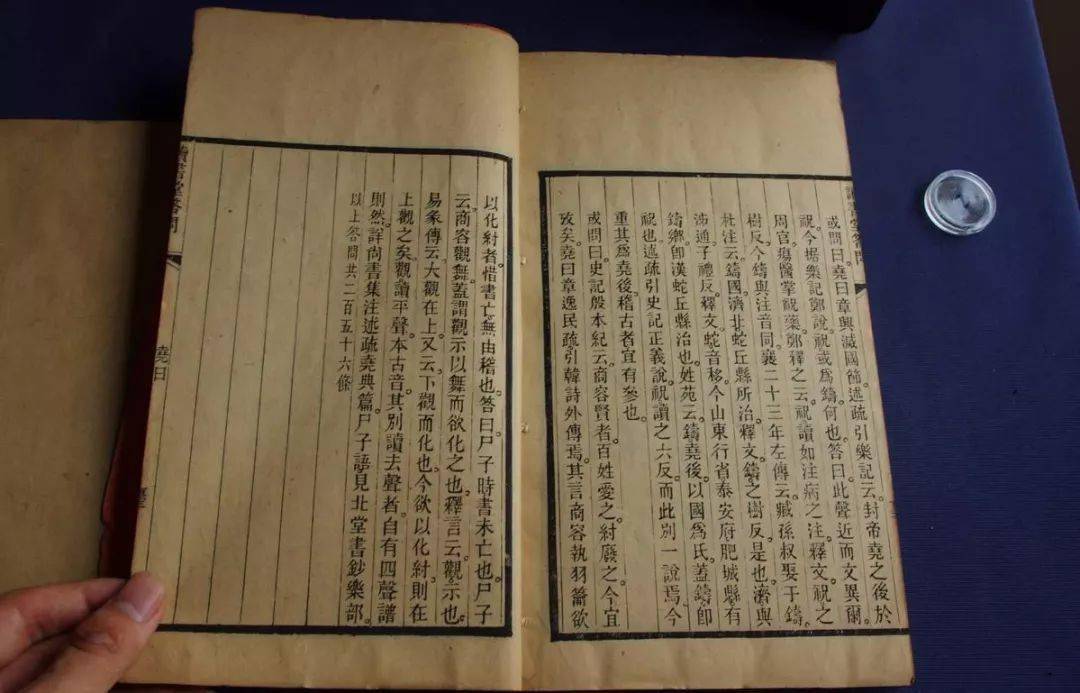 或問曰堯曰章興滅國節述疏引樂記云封帝堯之後於
祝今據樂記鄭說祝或為鑄何也答曰此聲近而文異爾
周官瘍醫掌祝藥鄭釋之云祝讀如注病之注釋文祝之
樹反今鑄與注音同襄二十三年左傳云臧孫叔娶于鑄
杜注云鑄國濟北蛇丘縣所治釋文鑄之樹反是也濟與
泲通子禮反釋文蛇音移今山東行省泰安府肥城縣有
鑄鄉卽漢蛇丘縣治也姓苑云鑄堯後以國爲氏蓋鑄卽
祝也述疏引史記正義說祝讀之六反而此別一說焉今
重其爲堯後稽古者宜有參也
或問曰史記殷本紀云商容賢者百姓愛之紂廢之今宜
攷矣堯曰章逸民疏引韓詩外傳焉其言商容執羽籥欲
以化紂者惜書亡無由稽也答曰尸子時書未亡也尸子
云商容觀舞蓋謂觀示以舞而欲化之也釋言云觀示也
易彖傳云大觀在上又云下觀而化也今欲以化紂則在
上觀之矣觀讀平聲本古音其別讀去聲者自有四聲譜
則然詳尚書集注述疏堯典篇尸子語見北堂書鈔樂部
以上答問共二百五十六條
讀書堂答問
堯曰